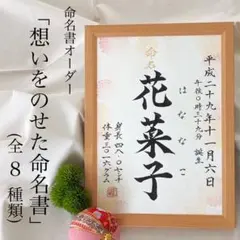 平成二十九年十一月六日
午後〇時三十九分 誕生
命名
はななこ
花菜子
身長 四八・〇センチ
体重 三〇一六グラム
命名書オーダー
「想いをのせた命名書」
(全8種類)